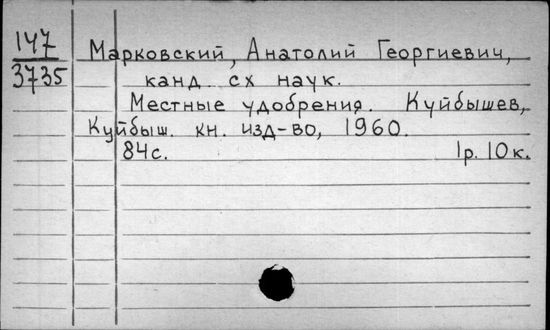 147
3735
Марковский, Анатолий Георгиевич,
канд. сх наук.
Местные удобрения. Куйбышев,
Куйбыш. кн. изд-во, 1960.
84с. 1р. 10к.